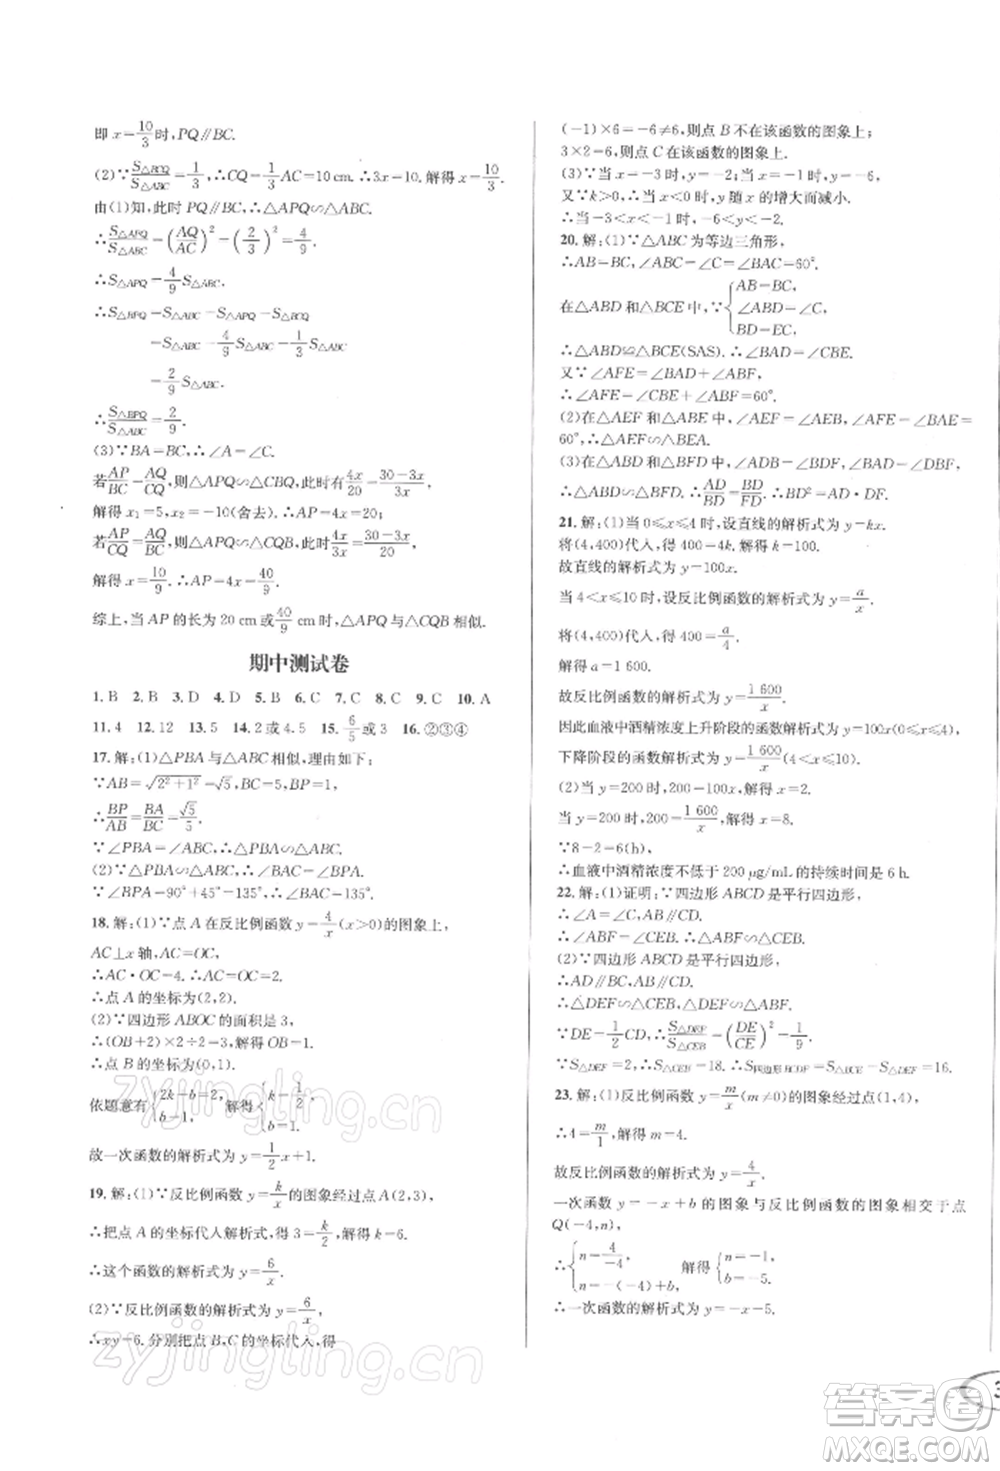 即 x=10/3时, PQ∥BC.
(2)∵S△BCQ/S△ABC=1/3, ∴CQ=1/3AC=10 cm. ∴3x=10. 解得 x=10/3.
由(1)知, 此时 PQ∥BC, ∴△APQ∽△ABC.
∴S△APQ/S△ABC=(AQ/AC)²=(2/3)²=4/9.
∴S△APQ=4/9S△ABC.
∴S△BPQ=S△ABC-S△APQ-S△BCQ
=S△ABC-4/9S△ABC-1/3S△ABC
=2/9S△ABC.
∴S△BPQ/S△ABC=2/9.
(3)∵BA=BC, ∴∠A=∠C.
若AP/BC=AQ/CQ, 则△APQ∽△CBQ, 此时4x/20=30-3x/3x,
解得 x₁=5, x₂=-10(舍去). ∴AP=4x=20;
若AP/CQ=AQ/BC, 则△APQ∽△CQB, 此时4x/3x=30-3x/20,
解得 x=10/9. ∴AP=4x=40/9.
综上, 当 AP 的长为 20 cm或40/9 cm时, △APQ与△CQB 相似.
期中测试卷
1. B 2. B 3. D 4. D 5. B 6. C 7. C 8. C 9. C 10. A
11. 4 12. 12 13. 5 14. 2 或 4.5 15. 6/5或 3 16. ②③④
17. 解:(1)△PBA 与△ABC 相似, 理由如下:
∵AB=√2²+1²=√5, BP=1,
∴BP/AB=BA/BC=√5/5.
∵∠PBA=∠ABC, ∴△PBA∽△ABC.
(2)∵△PBA∽△ABC, ∴∠BPA=∠BAC.
∵∠BAC=90°+45°=135°, ∴∠BPA=135°.
18. 解:(1)∵点 A 在反比例函数 y=4/x(x>0)的图象上,
AC⊥x 轴, AC=OC,
∴AC·OC=4. ∴AC=OC=2.
∴点 A 的坐标为(2,2).
(2)∵四边形 ABOC 的面积是 3,
∴(OB+2)×2÷2=3. 解得 OB=1.
∴点 B 的坐标为(0,1).
依题意有{2k+b=2, b=1, 解得{k=1/2, b=1.
故一次函数的解析式为 y=1/2x+1.
19. 解:(1)∵反比例函数 y=k/x的图象经过点 A(2,3),
∴把点 A 的坐标代入解析式, 得 3=k/2, 解得 k=6.
∴这个函数的解析式为 y=6/x.
(2)∵反比例函数的解析式为 y=6/x,
∴xy=6. 分别把点 B, C 的坐标代入, 得
(-1)×6=-6≠6, 则点 B 不在该函数的图象上;
3×2=6, 则点 C 在该函数的图象上.
(3)∵当 x=-3 时, y=-2, 当 x=-1 时, y=-6,
又∵k>0, ∴当 x<0 时, y 随 x 的增大而减小.
∴当-3<x<-1 时, -6<y<-2.
20. 解:(1)∵△ABC 为等边三角形,
∴AB=BC, ∠ABC=∠C=∠BAC=60°.
在△ABD 和△BCE 中, ∵{AB=BC, ∠ABD=∠C, BD=EC,
∴△ABD≌△BCE(SAS). ∴∠BAD=∠CBE.
又∵∠AFE=∠BAD+∠ABF,
∴∠AFE=∠CBE+∠ABF=60°.
(2)在△AEF 和△ABE 中, ∠AEF=∠AEB, ∠AFE=∠BAE=
60°, ∴△AEF∽△BEA.
(3)在△ABD 和△BFD 中, ∠ADB=∠ADB, ∠BAD=∠CBE,
∴△ABD∽△BFD. ∴AD/BD=BD/FD. ∴BD²=AD·DF.
21. 解:(1)当 0≤x≤4 时, 设直线的解析式为 y=kx.
将(4,400)代入, 得 400=4k. 解得 k=100.
故直线的解析式为 y=100x.
当 4<x≤10 时, 设反比例函数的解析式为 y=a/x.
将(4,400)代入, 得 400=a/4.
解得 a=1 600.
故反比例函数的解析式为 y=1 600/x.
因此血液中酒精浓度上升阶段的函数解析式为 y=100x(0≤x≤4),
下降阶段的函数解析式为 y=1 600/x(4<x≤10).
(2)当 y=200 时, 200=100x. 解得 x=2.
当 y=200 时, 200=1 600/x. 解得 x=8.
∵8-2=6(h),
∴血液中酒精浓度不低于 200 μg/mL 的持续时间是 6 h.
22. 解:(1)证明:∵四边形 ABCD 是平行四边形,
∴∠A=∠C, AB∥CD.
∴∠ABF=∠CEB. ∴△ABF∽△CEB.
(2)∵四边形 ABCD 是平行四边形,
∴AD∥BC, AB∥CD.
∴△DEF∽△CEB, △DEF∽△ABF.
∵DE=1/2CD, ∴S△DEF/S△CEB=(DE/CE)²=1/9.
∵S△DEF=2, ∴S△CEB=18. ∴S四边形BCDF=S△CEB-S△DEF=16.
23. 解:(1)反比例函数 y=m/x(m≠0)的图象经过点(1,4),
∴4=m/1, 解得 m=4.
故反比例函数的解析式为 y=4/x.
一次函数 y=-x+b 的图象与反比例函数的图象相交于点
Q(-4,n),
∴{n=4/-4, n=-(-4)+b, 解得{n=-1, b=-5.
∴一次函数的解析式为 y=-x-5.
zyjingling.cn
zyjingling.cn
答案卷
MXQE.COM
3